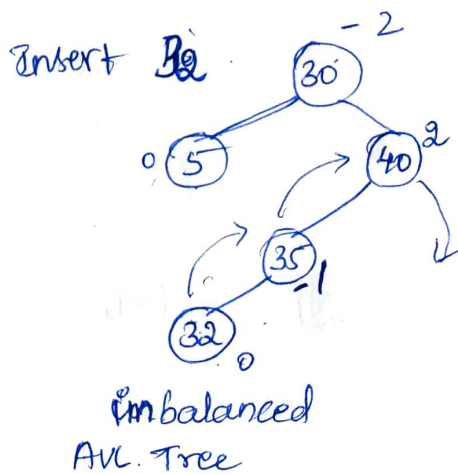 -2
Insert 32
30
0 5
40 2
35
-1
32
0
imbalanced
AVL. Tree